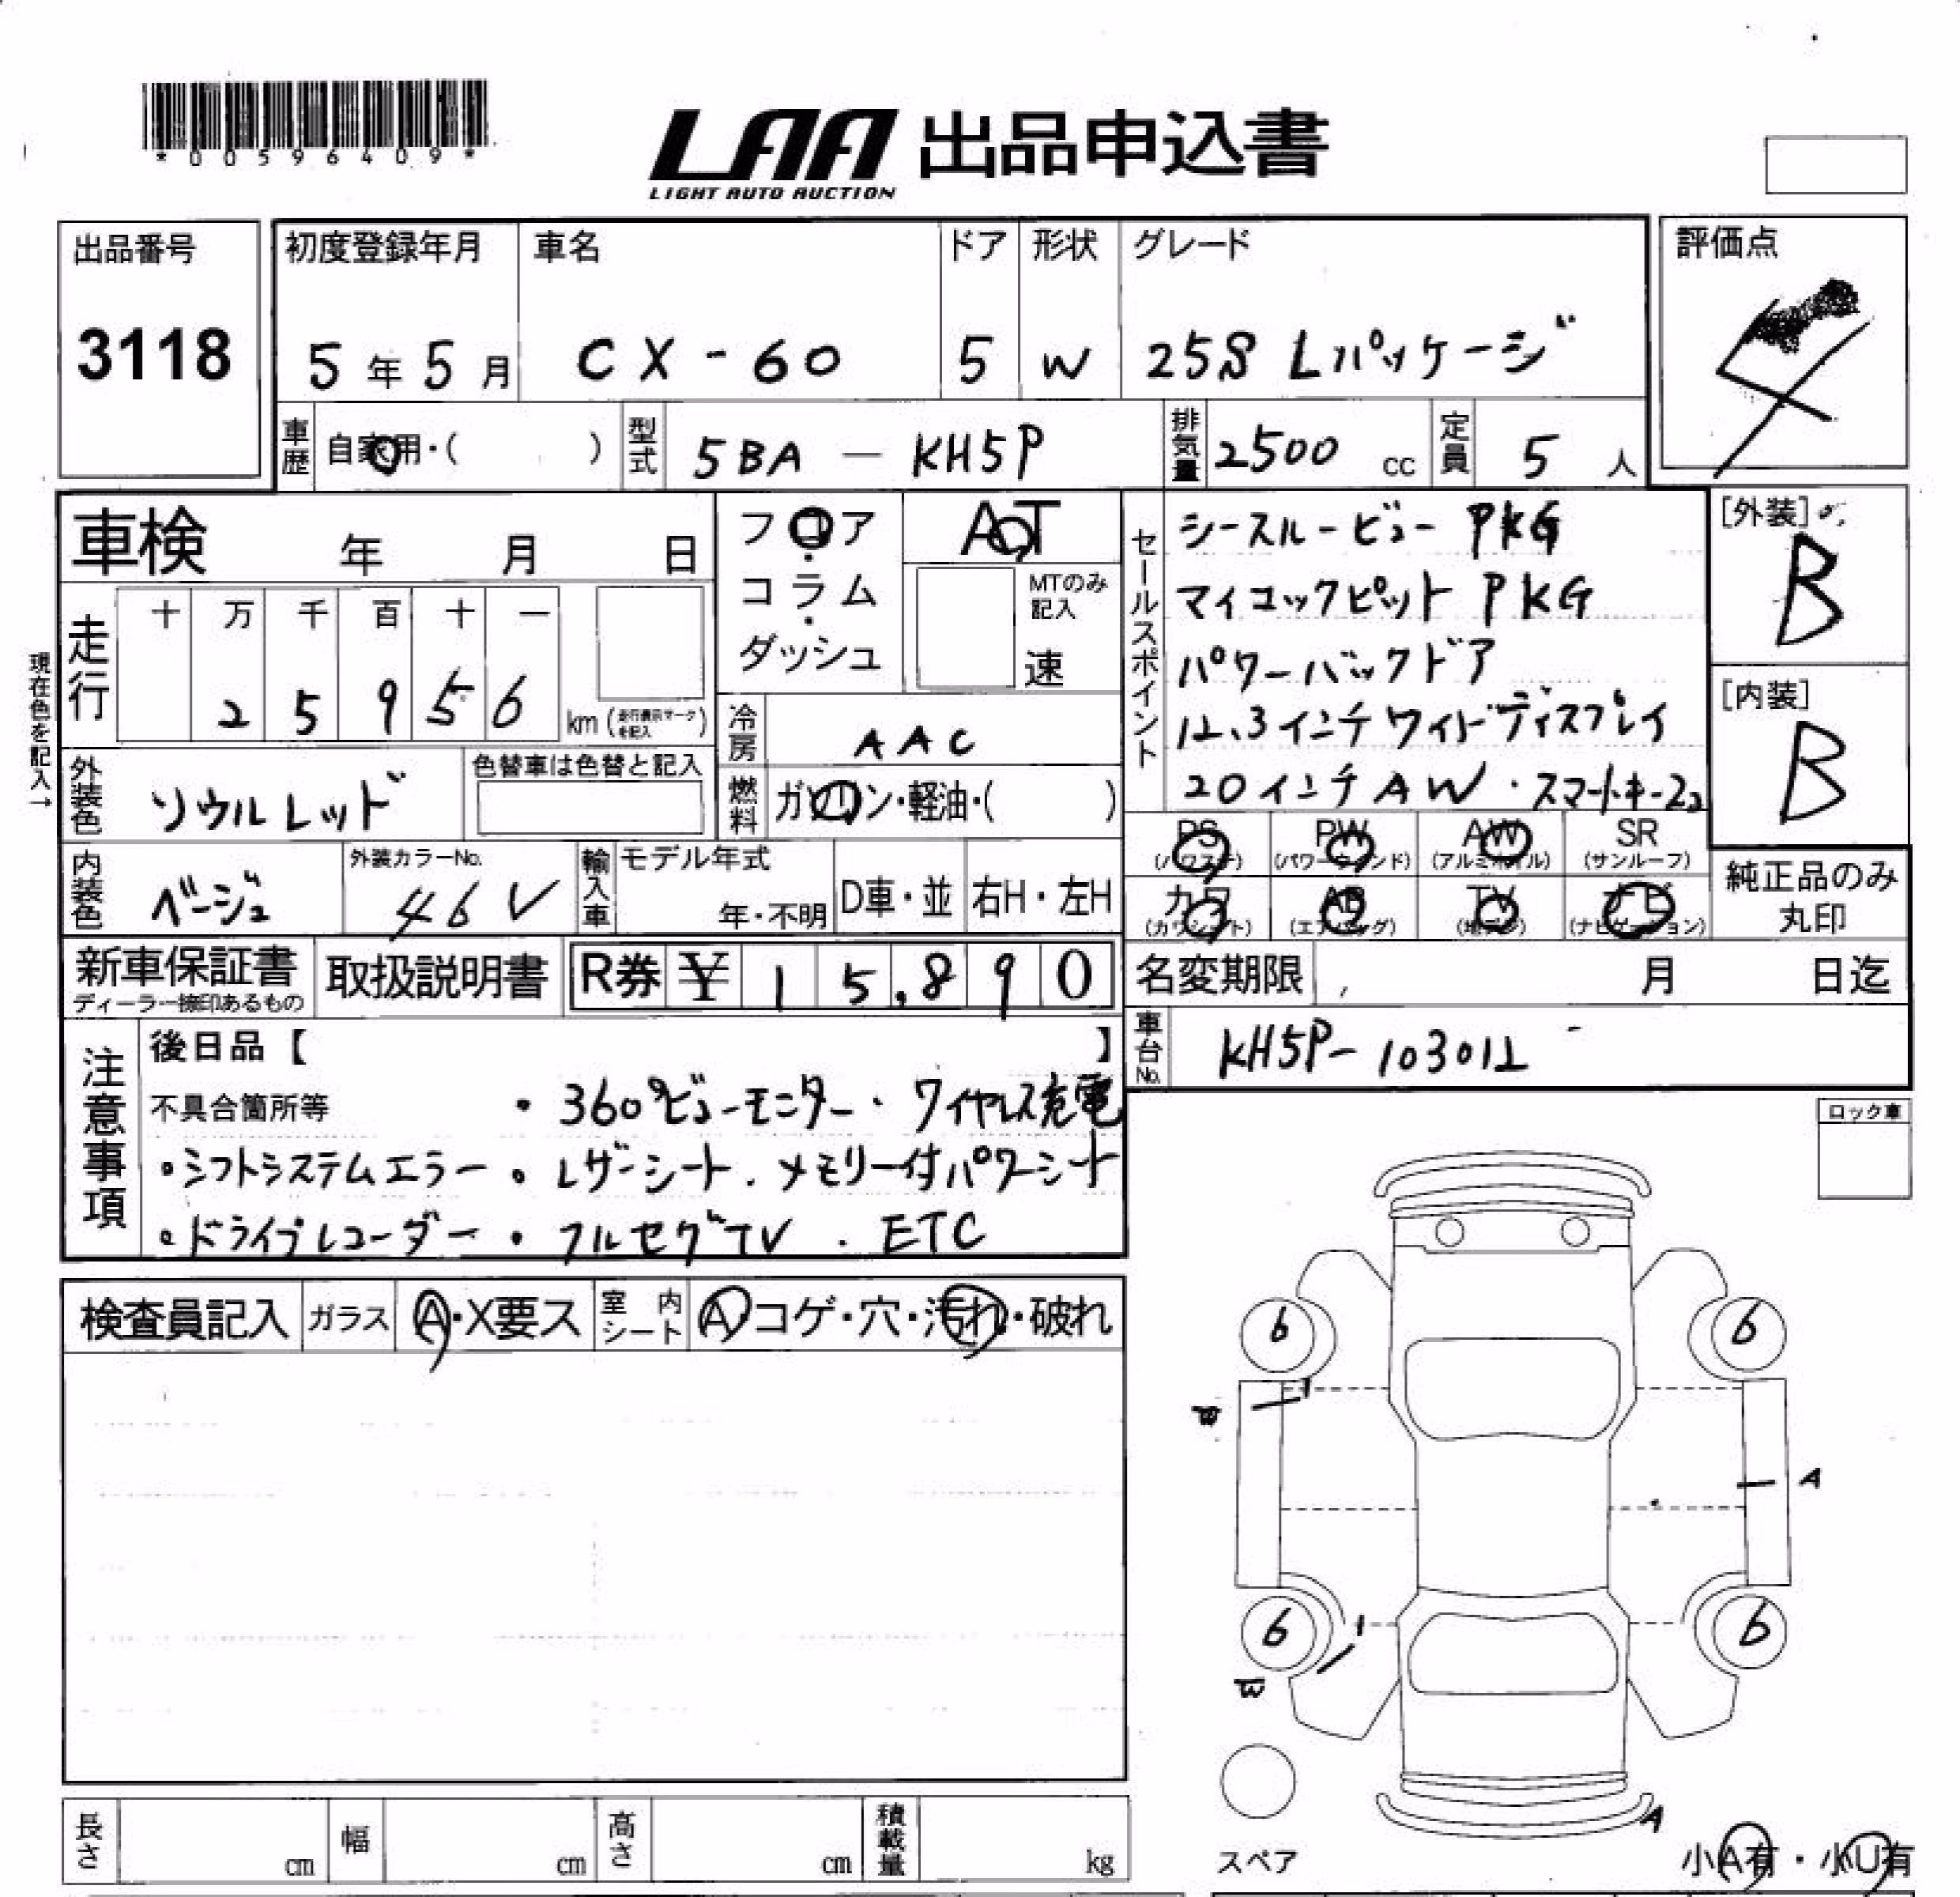 *00596409*
LAA 出品申込書
LIGHT AUTO AUCTION
出品番号
3118
初度登録年月
5年5月
車名
CX-60
ドア
5
形状
W
グレード
25S Lパッケージ
評価点
4
車歴
自家用・( )
型式
5BA — KH5P
排気量
2500 cc
定員
5 人
車検 年 月 日
フロア・コラム・ダッシュ
AT
MTのみ記入
速
セールスポイント
シースルービュー PKG
マイコックピット PKG
パワーバックドア
12.3インチワイドディスプレイ
20インチAW・スマートキー2コ
[外装]
B
[内装]
B
現在色を記入→
走行
十 万 千 百 十 一
2 5 9 5 6
km (走行表示マークを記入)
冷房
AAC
外装色
ソウルレッド
色替車は色替と記入
燃料
ガソリン・軽油・( )
PS (パワステ)
PW (パワーウィンド)
AW (アルミホイル)
SR (サンルーフ)
カワ (カワシート)
AB (エアバッグ)
TV (地デジ)
ナビ (ナビゲーション)
純正品のみ丸印
内装色
ベージュ
外装カラーNo.
46V
輸入車
モデル年式
年・不明
D車・並
右H・左H
新車保証書
ディーラー捺印あるもの
取扱説明書
R券 ¥ 15,890
名変期限 月 日迄
車台No.
KH5P-103012
注意事項
後日品【 】
不具合箇所等
・360°ビューモニター・ワイヤレス充電
・シフトシステムエラー・レザーシート・メモリー付パワーシート
・ドライブレコーダー・フルセグTV・ETC
ロック車
検査員記入
ガラス
A・X要ス
室内シート
A コゲ・穴・汚れ・破れ
6
6
W
A
6
6
W
A
スペア
小A有・小U有
長さ cm
幅 cm
高さ cm
積載量 kg